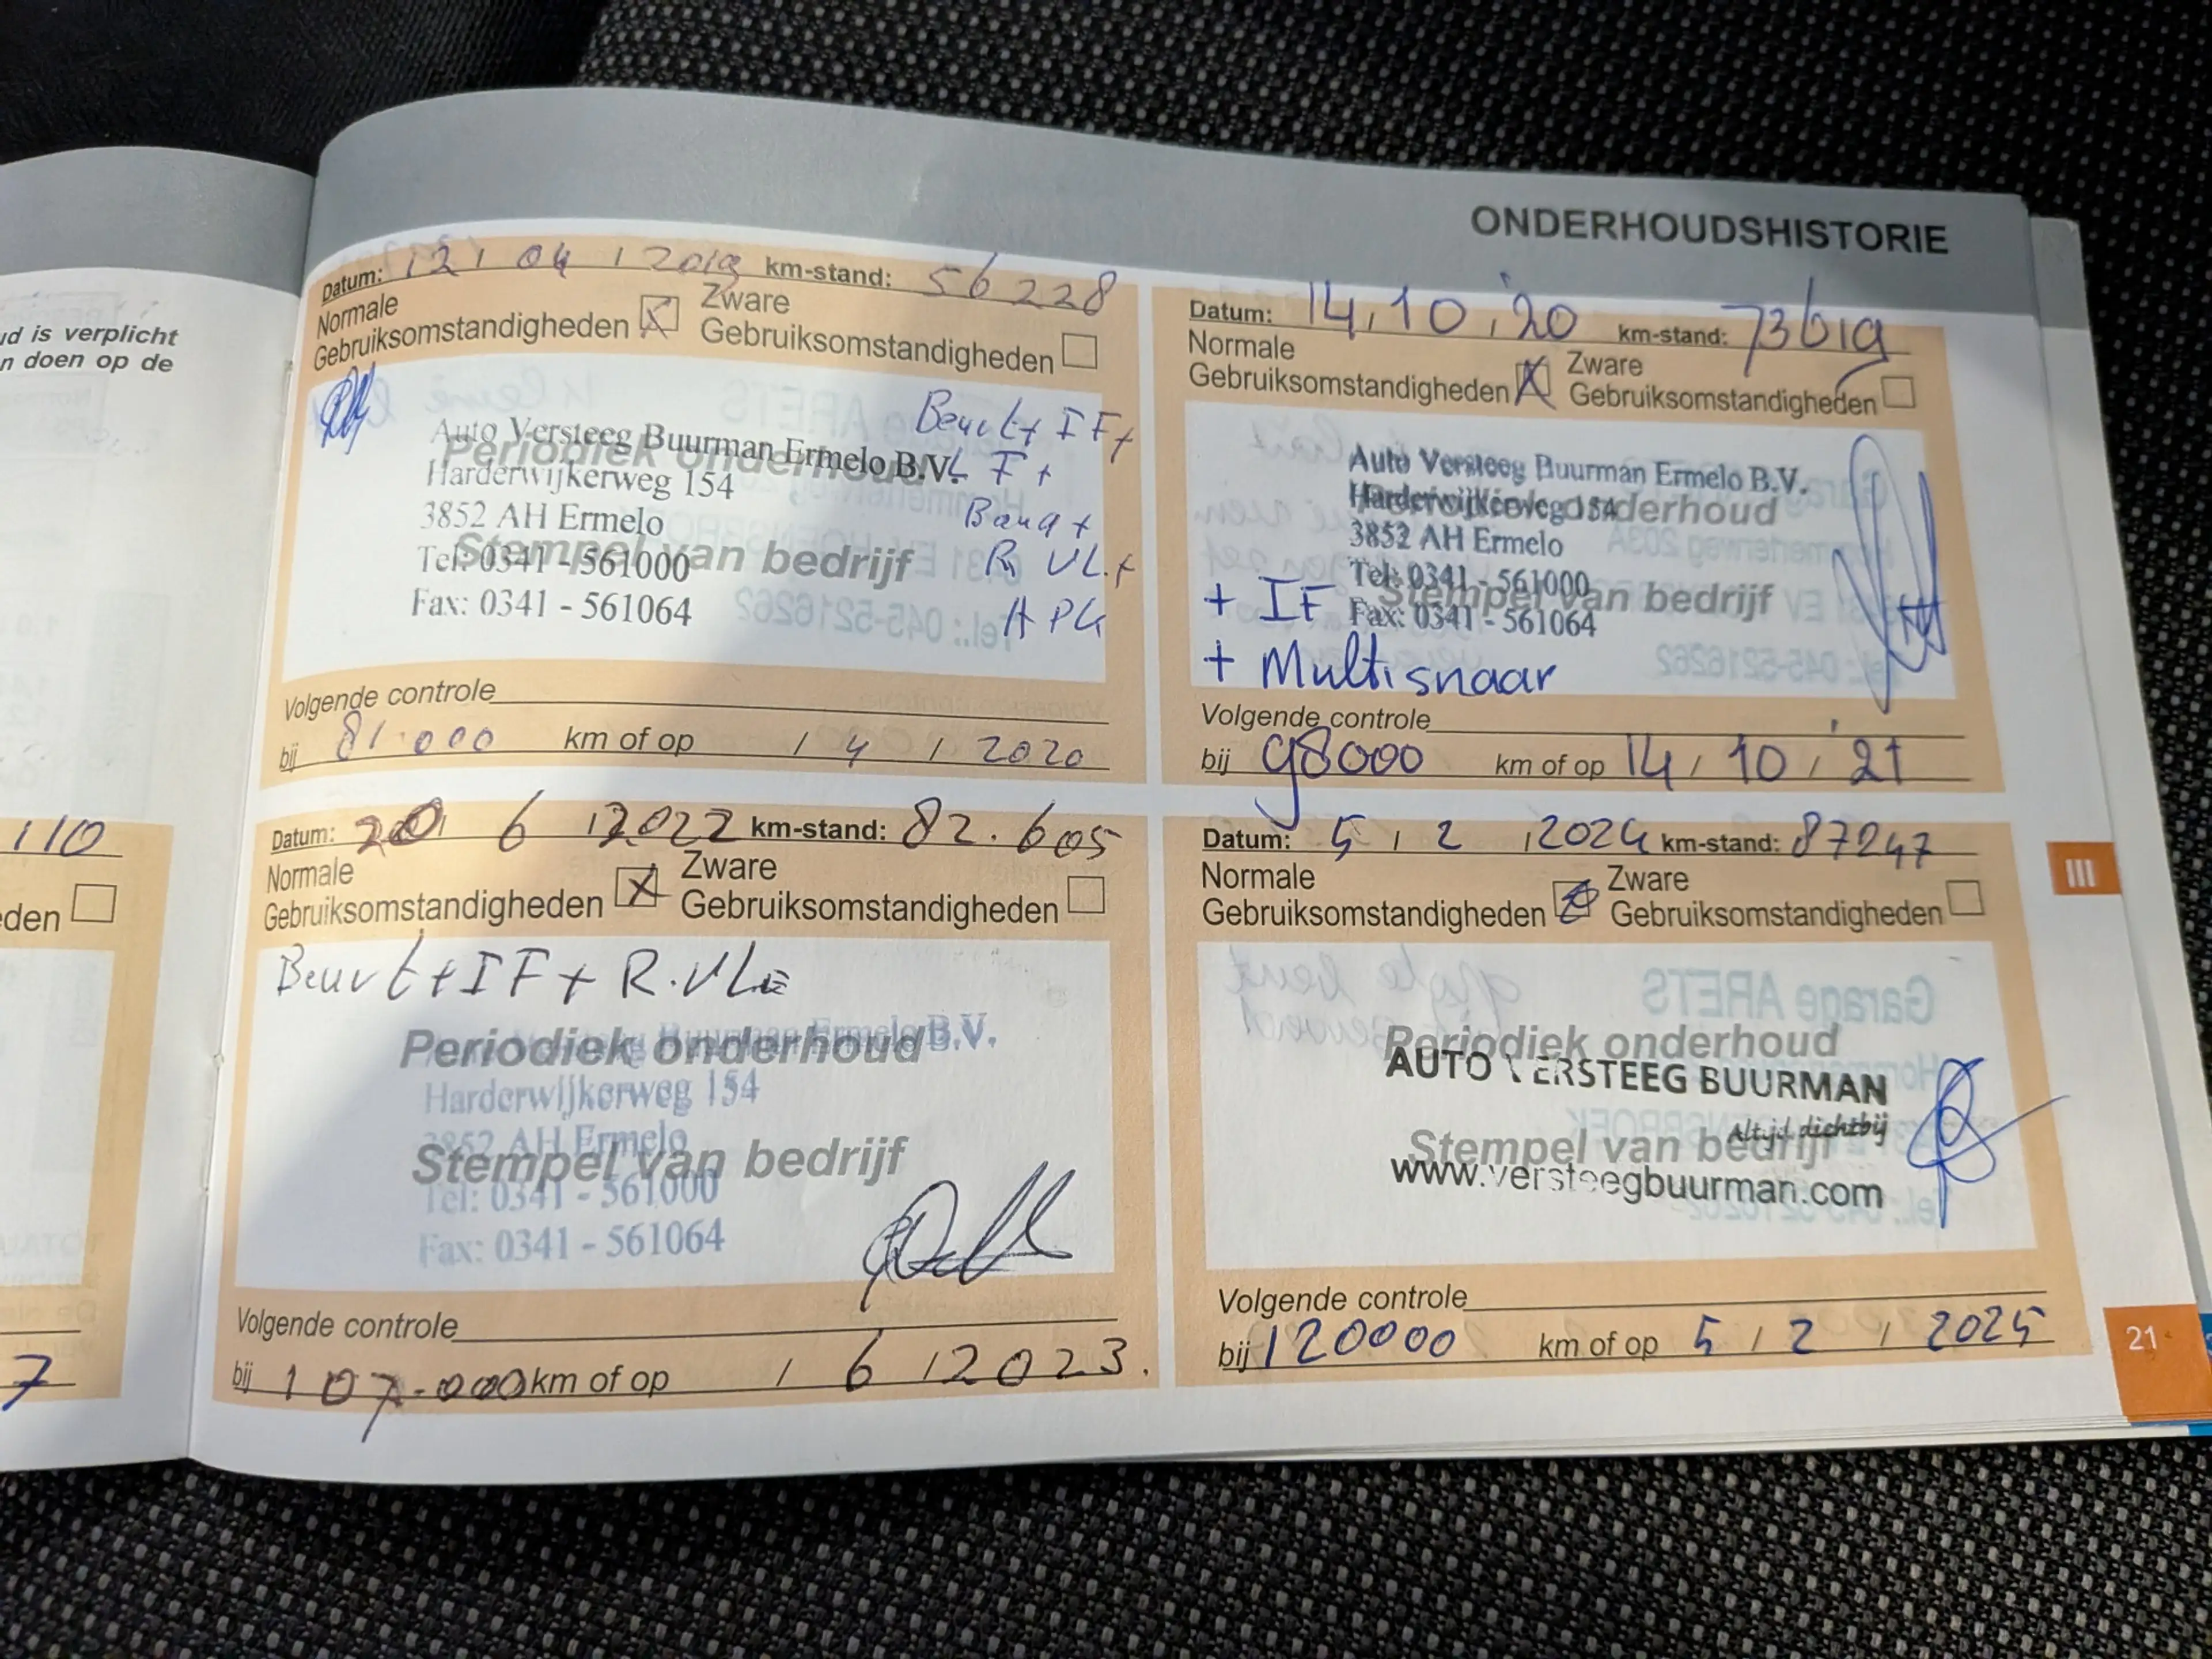 ONDERHOUDSHISTORIE
ud is verplicht
n doen op de
110
den
7
Datum: 12 / 04 / 2019 km-stand: 56228
Normale
Gebruiksomstandigheden
Zware
Gebruiksomstandigheden
Beurt + IF +
Auto Versteeg Buurman Ermelo B.V.
Periodiek onderhoud
LF +
Harderwijkerweg 154
3852 AH Ermelo
Band +
Tel: 0341 - 561000
Stempel van bedrijf
R VL. +
Fax: 0341 - 561064
Tel.: 045-5216262
Volgende controle
bij 81.000 km of op / 4 / 2020
Datum: 14, 10, '20 km-stand: 73619
Normale
Gebruiksomstandigheden
Zware
Gebruiksomstandigheden
Auto Versteeg Buurman Ermelo B.V.
Harderwijkerweg 154
Periodiek onderhoud
3852 AH Ermelo
Tel: 0341 - 561000
Stempel van bedrijf
+ IF
Fax: 0341 - 561064
+ Multisnaar
Tel.: 045-5216262
Volgende controle
bij 98000 km of op 14 / 10 / '21
Datum: 20 6 / 2022 km-stand: 82.605
Normale
Gebruiksomstandigheden
Zware
Gebruiksomstandigheden
Beurt + IF + R.VL
Periodiek onderhoud
Buurman Ermelo B.V.
Harderwijkerweg 154
3852 AH Ermelo
Stempel van bedrijf
Tel: 0341 - 561000
Fax: 0341 - 561064
Volgende controle
bij 107.000 km of op / 6 / 2023.
Datum: 5 / 2 / 2024 km-stand: 87247
Normale
Gebruiksomstandigheden
Zware
Gebruiksomstandigheden
Garage ARETS
Periodiek onderhoud
AUTO VERSTEEG BUURMAN
Altijd dichtbij
Stempel van bedrijf
www.versteegbuurman.com
Volgende controle
bij 120000 km of op 5 / 2 / 2025
III
21